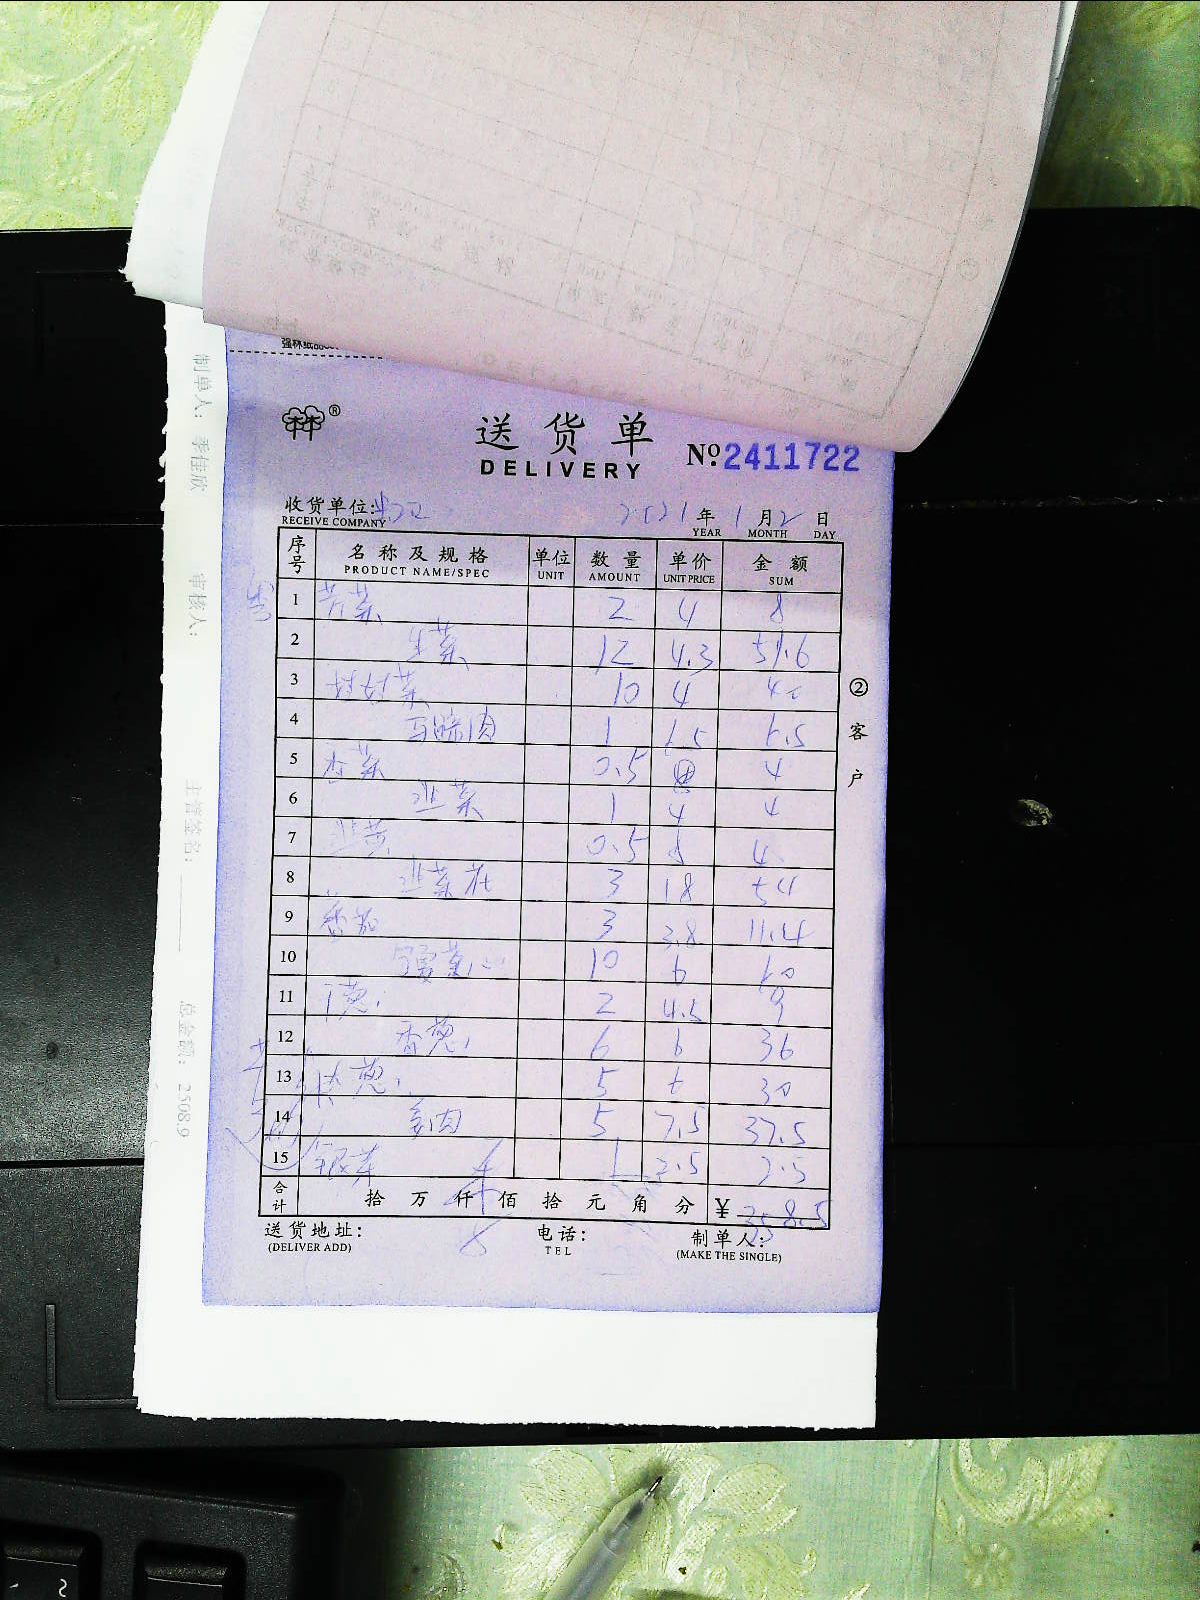 送货单
DELIVERY
№ 2411722
收货单位:
RECEIVE COMPANY
2021 年 1 月 2 日
YEAR MONTH DAY
序号 名称及规格 单位 数量 单价 金额
PRODUCT NAME/SPEC UNIT AMOUNT UNIT PRICE SUM
1 芹菜 2 4 8
2 生菜 12 4.3 51.6
3 10 4 40
4 1 6.5 6.5
5 香菜 0.5 4
6 韭菜 1 4 4
7 韭黄 0.5 8 4
8 韭菜花 3 18 54
9 番茄 3 3.8 11.4
10 10 6 60
11 2 4.5 9
12 香葱 6 6 36
13 5 6 30
14 姜肉 5 7.5 37.5
15 银芽 1 2.5 2.5
合计 拾 万 仟 佰 拾 元 角 分 ¥ 358.5
送货地址: 电话: 制单人:
(DELIVER ADD) TEL (MAKE THE SINGLE)
② 客户
制单人: 季桂欣
审核人:
主管签名:
总金额: 2508.9